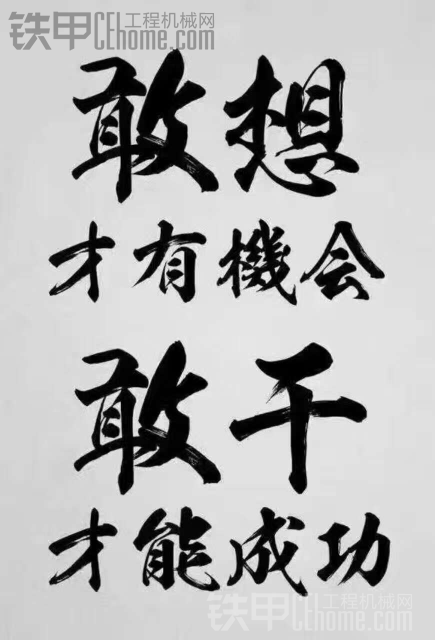 铁甲 工程机械网
CEhome.com
敢想
才有機会
敢干
才能成功
铁甲 工程机械网
CEhome.com